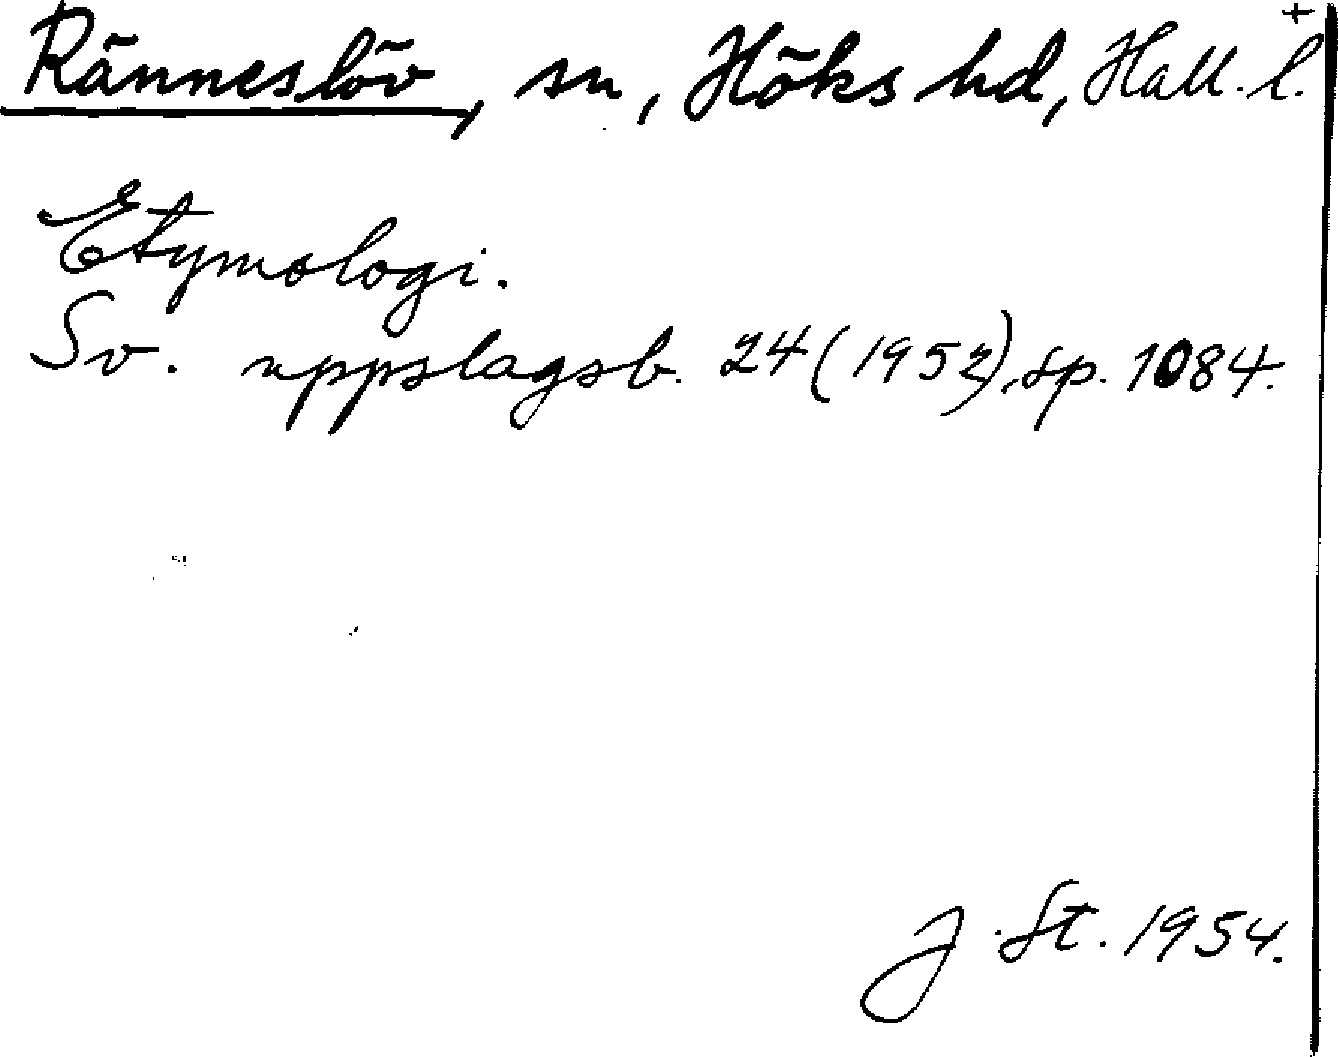 Ränneslöv, sn, Höks hd, Hall. l. +
Etymologi.
Sv. uppslagsb. 24 (1952), sp. 1084.
J. St. 1954.